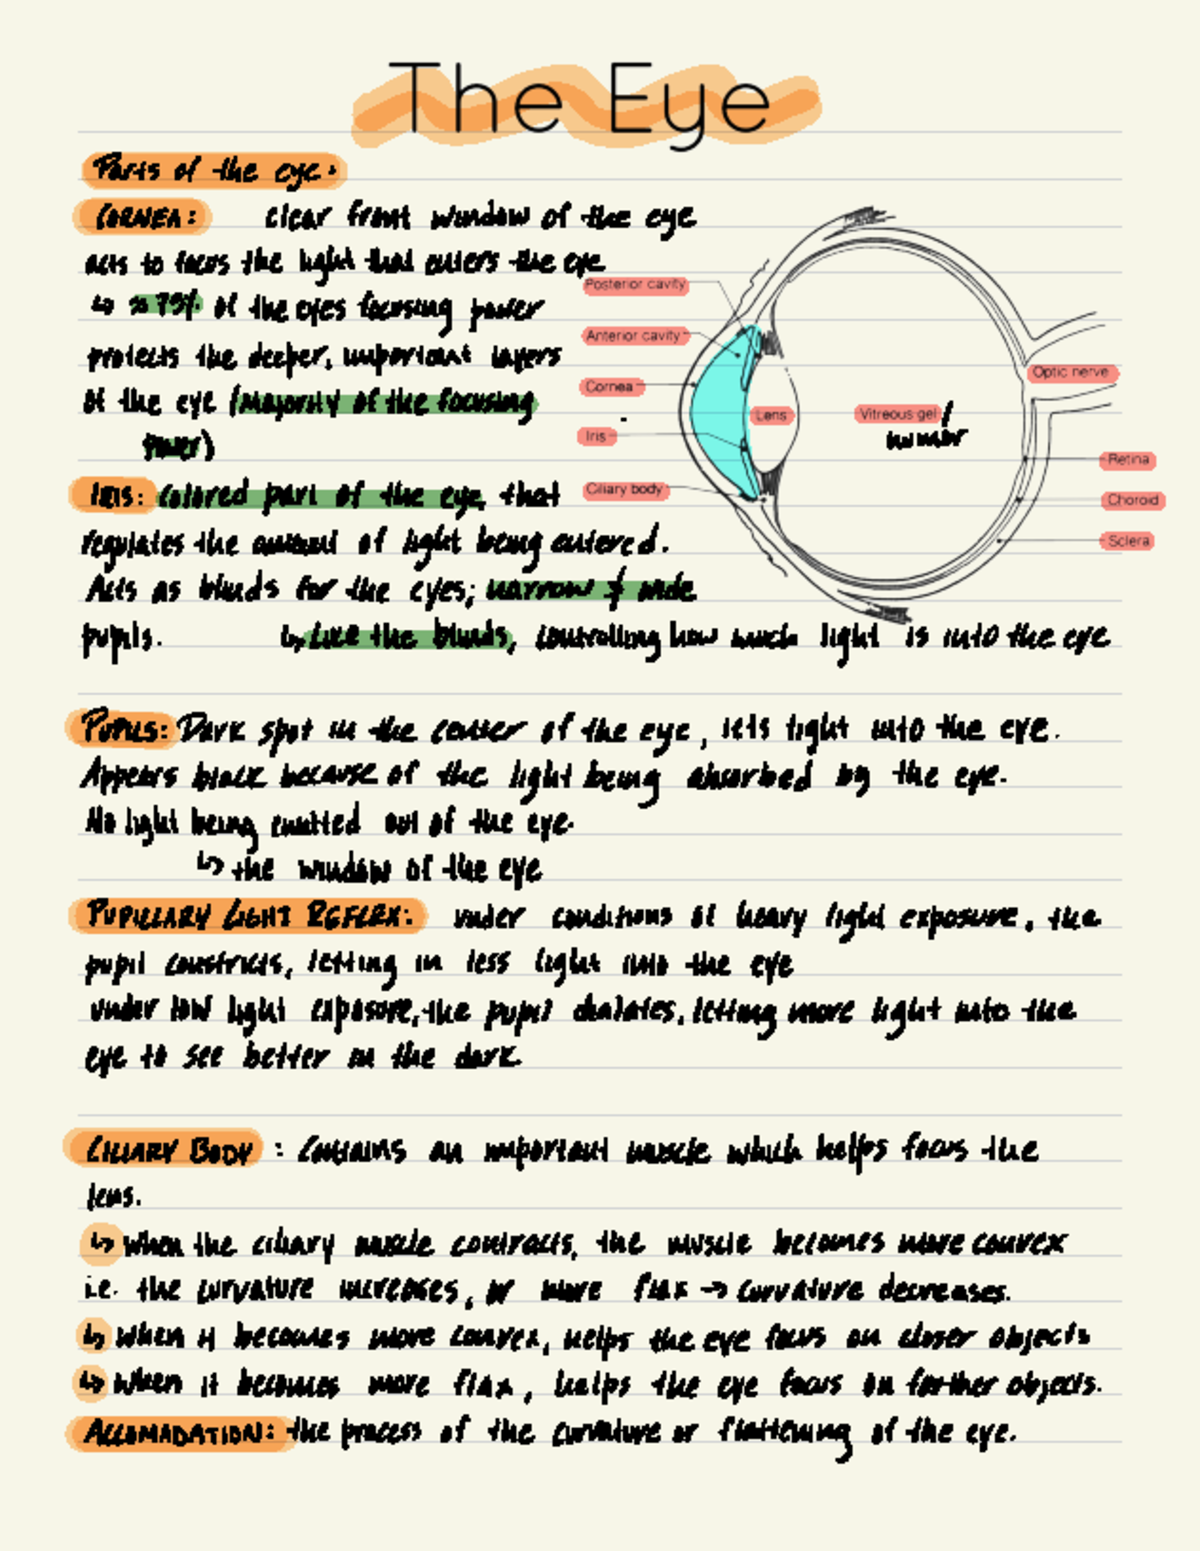 The Eye
Parts of the eye:
CORNEA: clear front window of the eye
acts to focus the light that enters the eye
↳ ≈ 75% of the eyes focusing power
protects the deeper, important layers
of the eye (majority of the focusing
power)
IRIS: colored part of the eye, that
regulates the amount of light being entered.
Acts as blinds for the eyes; narrow & wide
pupils. ↳ Like the blinds, controlling how much light is into the eye
Posterior cavity
Anterior cavity
Cornea
Iris
Ciliary body
Lens
Vitreous gel /
humor
Optic nerve
Retina
Choroid
Sclera
PUPILS: Dark spot in the center of the eye, lets light into the eye.
Appears black because of the light being absorbed by the eye.
No light being emitted out of the eye.
↳ the window of the eye
PUPILLARY LIGHT REFLEX: under conditions of heavy light exposure, the
pupil constricts, letting in less light into the eye
under low light exposure, the pupil dialates, letting more light into the
eye to see better in the dark.
CILIARY BODY : Contains an important muscle which helps focus the
lens.
↳ when the ciliary muscle contracts, the muscle becomes more convex
i.e. the curvature increases, or more flax → curvature decreases.
↳ when it becomes more convex, helps the eye focus on closer objects
↳ when it becomes more flax, helps the eye focus on farther objects.
ACCOMADATION: the process of the curvature or flattening of the eye.